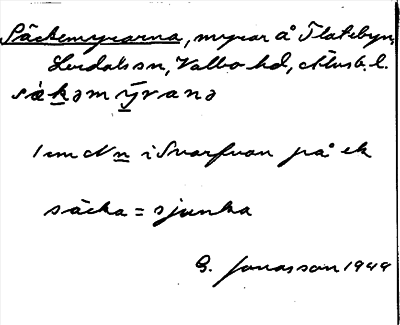 Säckemyrarna, myrar å Flatebyn,
Lerdals sn, Valbo hd, Älvsb. l.
sækəmȳranə
1 m N n i Svarfvan på ek
säcka = sjunka
G. Jonasson 1949